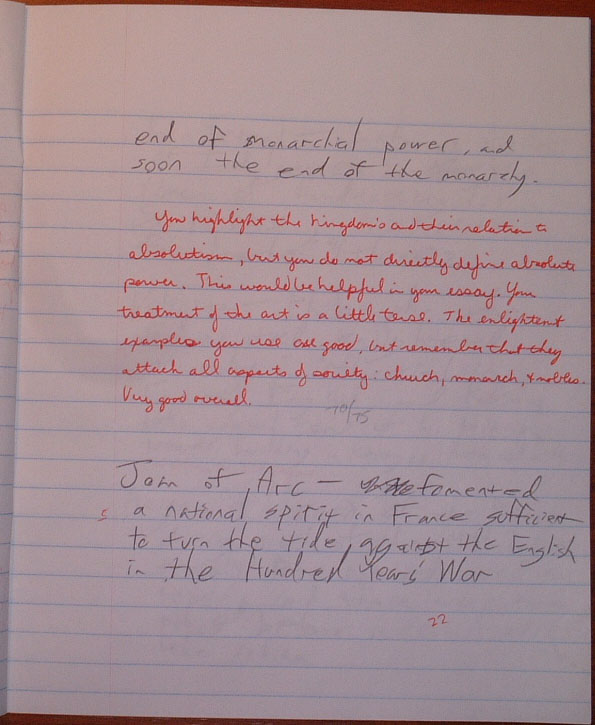 end of monarchial power, and
soon the end of the monarchy.
You highlight the kingdoms and their relation to
absolutism, but you do not directly define absolute
power. This would be helpful in your essay. Your
treatment of the art is a little terse. The enlightent
examples you use are good, but remember that they
attach all aspects of society: church, monarch, + nobles.
Very good overall.
70/75
Joan of Arc – fomented
5 a national spirit in France sufficient
to turn the tide against the English
in the Hundred Years' War
22